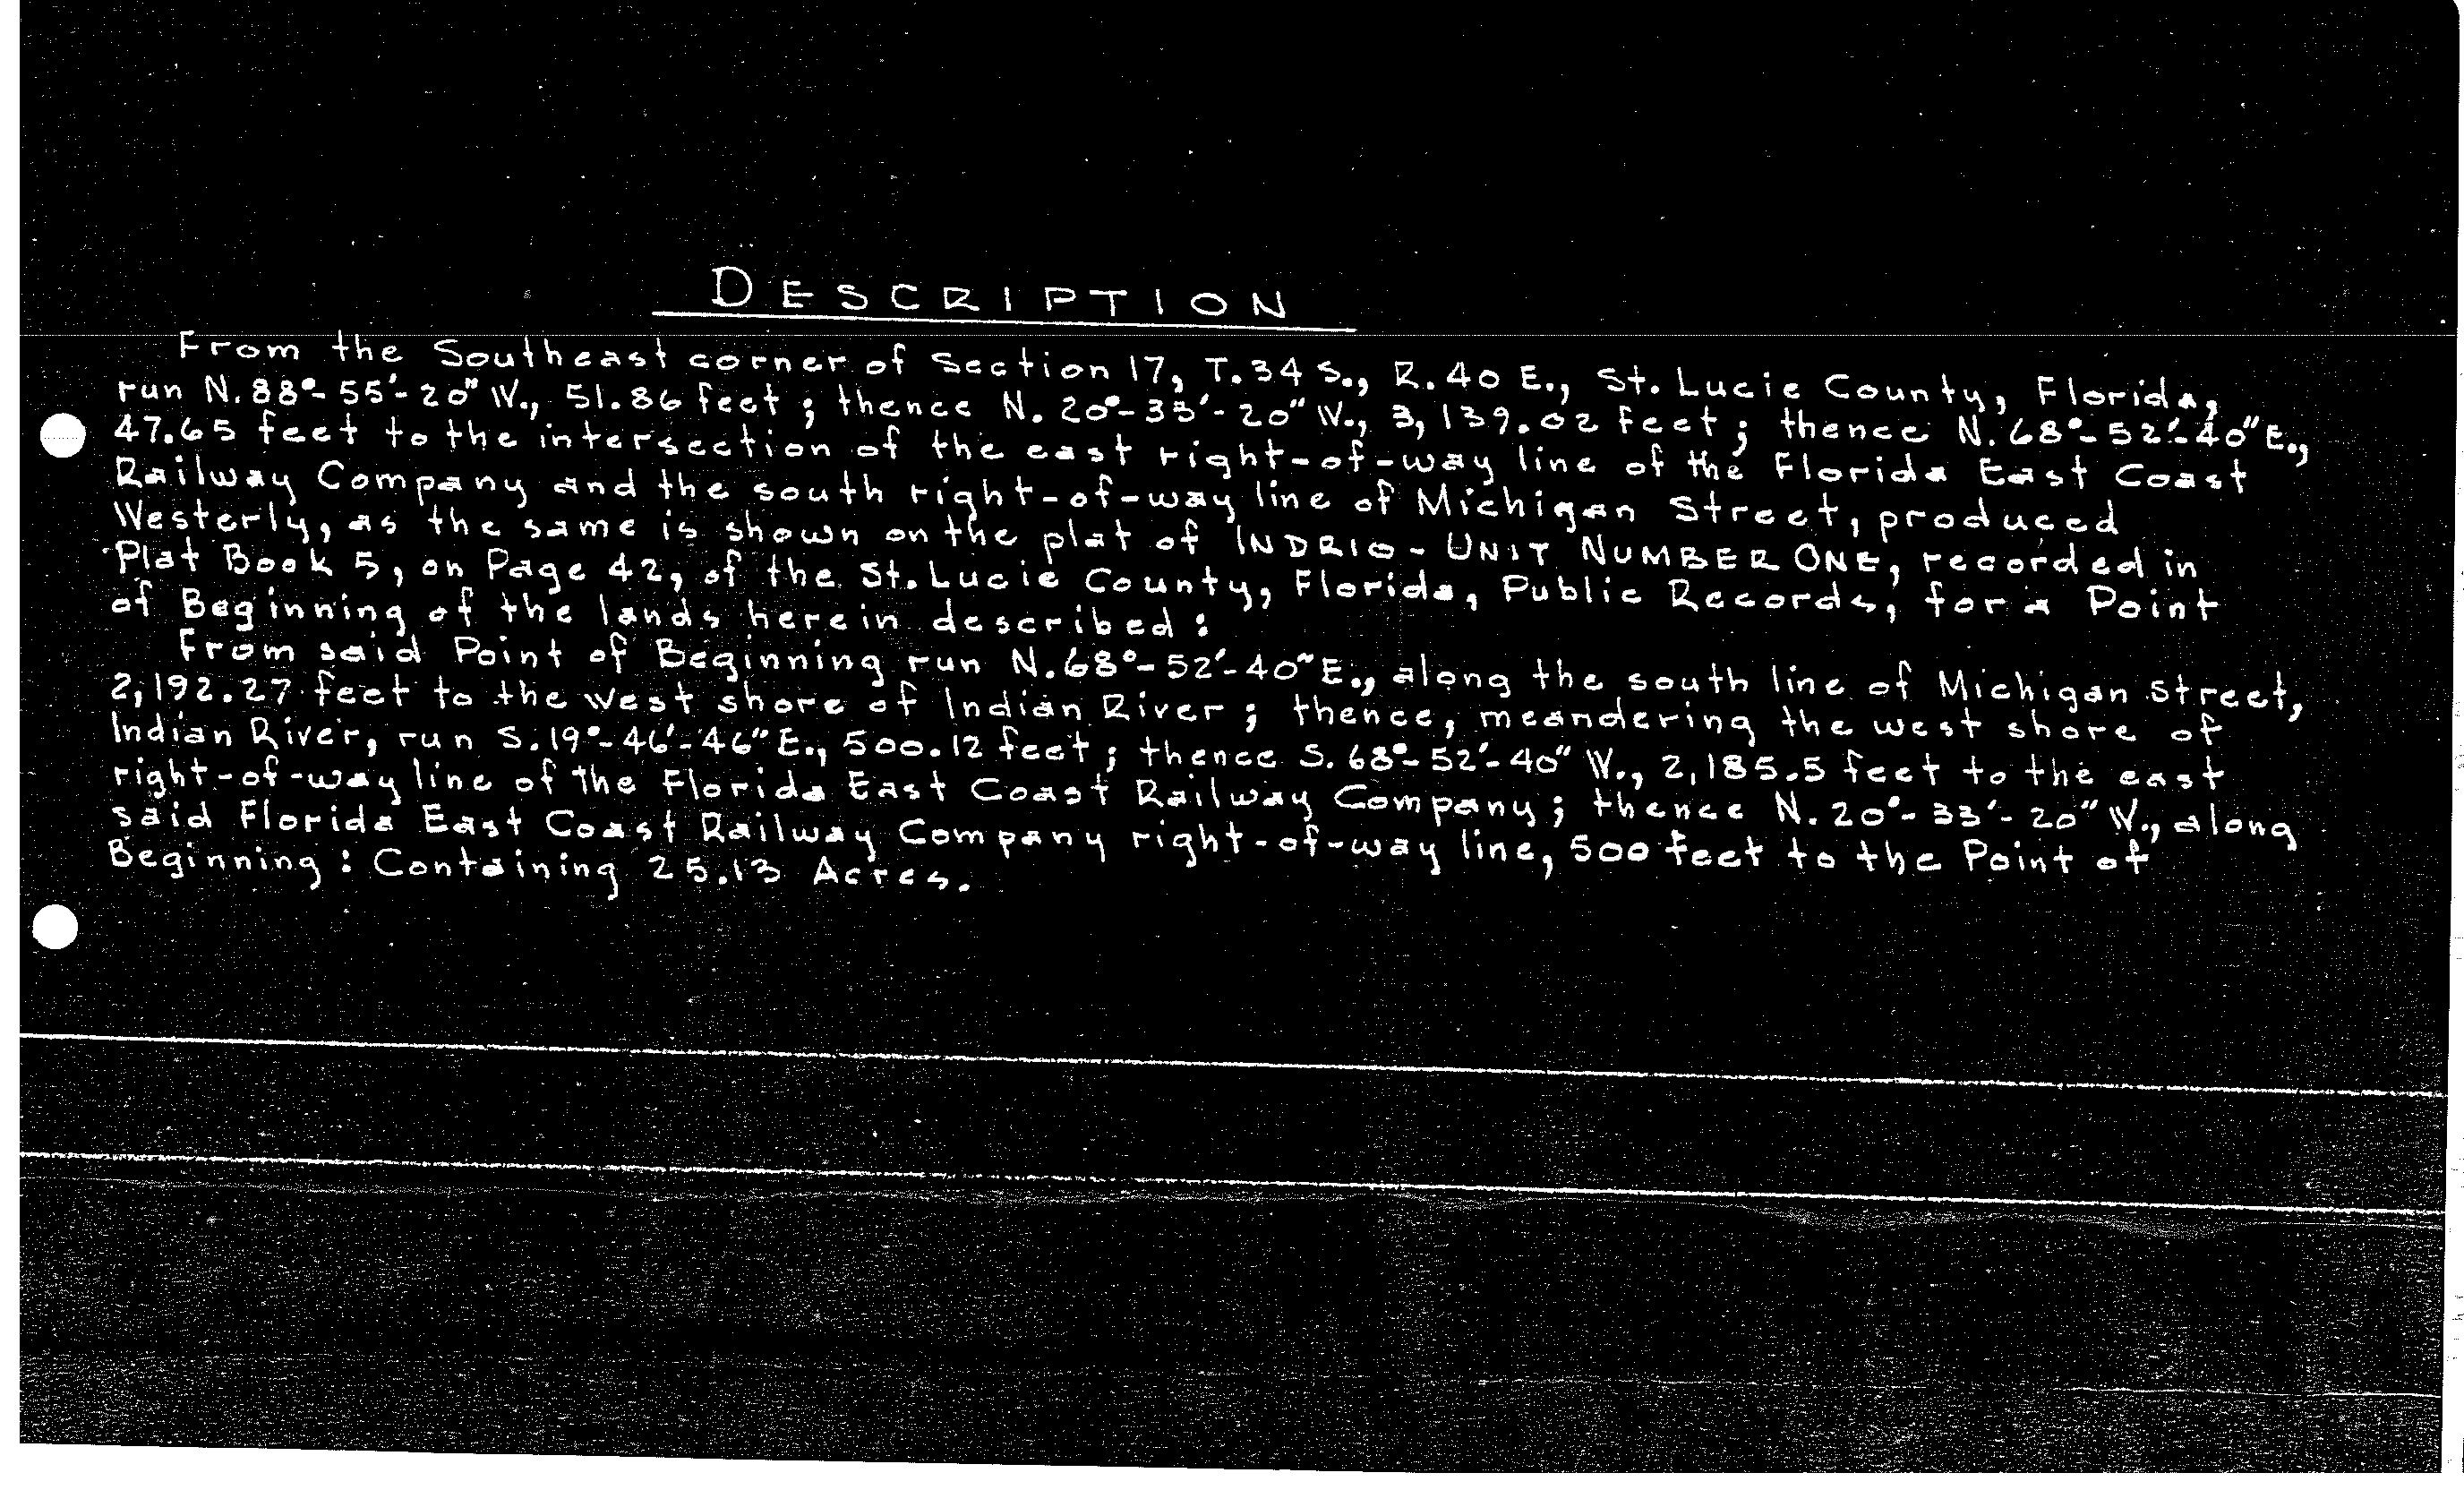 DESCRIPTION
From the Southeast corner of Section 17, T.34 S., R.40 E., St. Lucie County, Florida,
run N. 88°-55'-20" W., 51.86 feet; thence N. 20°-33'-20" W., 3,139.02 feet; thence N. 68°-52'-40" E.,
47.65 feet to the intersection of the east right-of-way line of the Florida East Coast
Railway Company and the south right-of-way line of Michigan Street, produced
Westerly, as the same is shown on the plat of INDRIO-UNIT NUMBER ONE, recorded in
Plat Book 5, on Page 42, of the St. Lucie County, Florida, Public Records, for a Point
of Beginning of the lands herein described:
From said Point of Beginning run N. 68°-52'-40" E., along the south line of Michigan Street,
2,192.27 feet to the west shore of Indian River; thence, meandering the west shore of
Indian River, run S. 19°-46'-46" E., 500.12 feet; thence S. 68°-52'-40" W., 2,185.5 feet to the east
right-of-way line of the Florida East Coast Railway Company; thence N. 20°-33'-20" W., along
said Florida East Coast Railway Company right-of-way line, 500 feet to the Point of
Beginning: Containing 25.13 Acres.